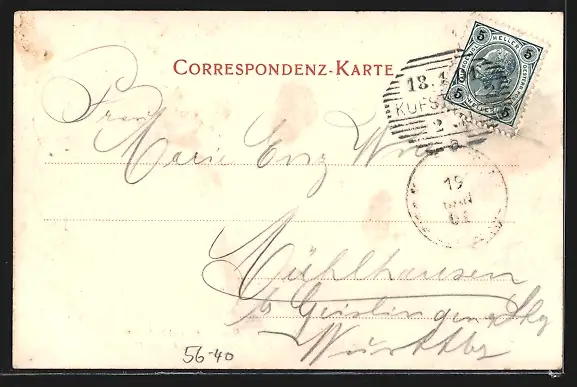 CORRESPONDENZ-KARTE
5 HELLER 5
5 5
18.
KUFS
2
Frau
Marie Enz Wwe
19
01
Mühlhausen
b Geislingen a/Stg
Württbg
56-40